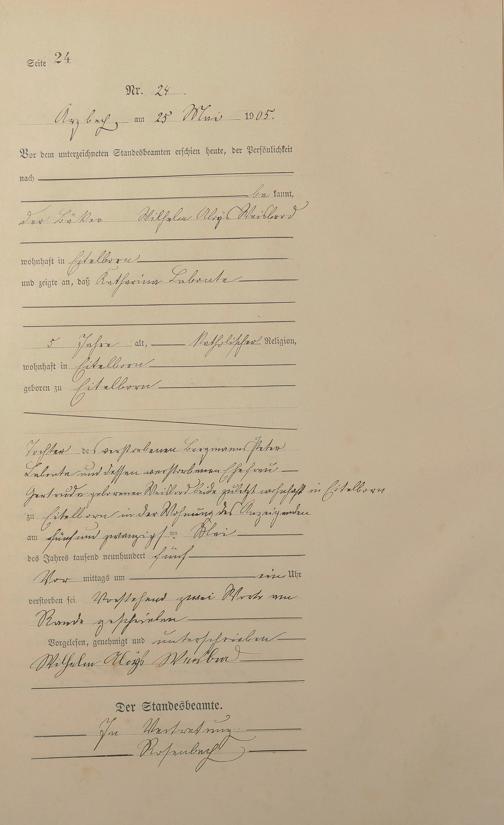 Seite 24
Nr. 24
Arzbach, am 25 Mai 1905.
Vor dem unterzeichneten Standesbeamten erschien heute, der Persönlichkeit
nach
be kannt,
der Bäcker Wilhelm Aloÿs Weisbrod
wohnhaft in Eitelborn
und zeigte an, daß Katharina Labonte
5 Jahre alt, katholischer Religion,
wohnhaft in Eitelborn
geboren zu Eitelborn
Tochter des verstorbenen Bergmanns Peter
Labonte und dessen verstorbenen Ehefrau
Gertrud geborenen Weisbrod beide zuletzt wohnhaft in Eitelborn
zu Eitelborn in der Wohnung des Anzeigenden
am fünf und zwanzigsten Mai
des Jahres tausend neunhundert fünf
Vor mittags um ein Uhr
verstorben sei. Vorstehend zwei Worte am
Rande geschrieben
Vorgelesen, genehmigt und unterschrieben
Wilhelm Aloÿs Weisbrod
Der Standesbeamte.
In Vertretung
Rosenbach